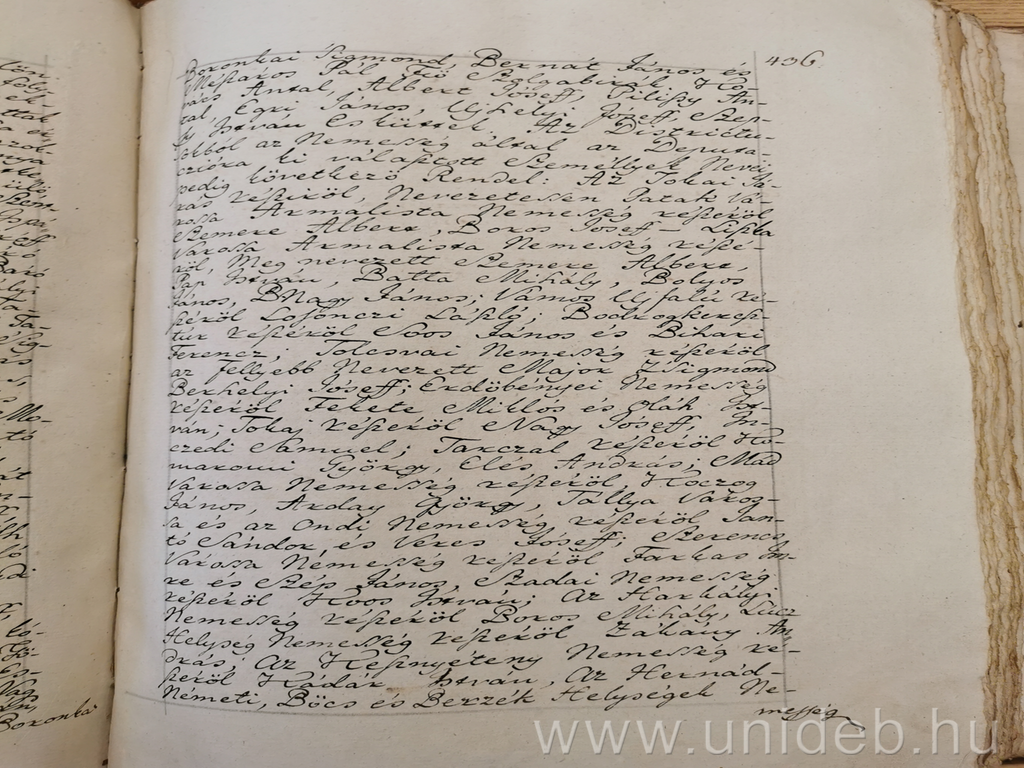 406
Boronkai Sigmond, Bernat János, és
Mészaros Pál Fő Szolgabirák, Ko-
vács Antal, Albert Joseff, Pilisy An-
tal, Egri János, Ujhelyi Joseff, Szen-
István Esküttek. Az Districtu-
sokból az Nemesség által az Deputa-
tióra ki választott Személyek Nevei
pedig következő Rendel: Az Tokai Já-
rás részéröl, Nevezetessen Patak Vá-
rossa Armalista Nemesség részéröl
Szemere Albert, Boros Joseff - Liszka
Varossa Armalista Nemesség részé-
röl, Meg nevezett Szemere Albert,
Pap István, Batta Mihály, Bolyos
János, B Nagy János; Vámos Ujfalu ré-
széröl Losonczi László; Bodrogkeresz-
tur részéröl Soos János és Bihari
Ferencz; Tolcsvai Nemesség részéröl
az fellyebb Nevezett Major Zsigmond
Berhelyi Joseff; Erdöbényei Nemesség
részéröl Fekete Miklós és Oláh Ist-
ván; Tokaj részéröl Nagy Joseff, In-
czedi Samuel; Tarczal részéröl Ko-
maromi György, Elés András; Mád
Varossa Nemesség részéröl Herczog
János, Arday György, Tállya Város-
sa és az Ondi Nemesség részéröl Sán-
tó Sándor, és Veres Joseff; Szerencs
Varossa Nemesség részéröl Farkas Im-
re és Szép János, Szadai Nemesség
részéröl Koos István; Az Harkályi
Nemesség részéröl Boros Mihály, Lucz
Helység Nemesség részéröl Zákány An-
drás; Az Kesznyéteny Nemesség ré-
széröl Kádár István, Az Hernád-
Németi, Böcs és Berzék Helységek Ne-
messég
Boronkai
www.unideb.hu